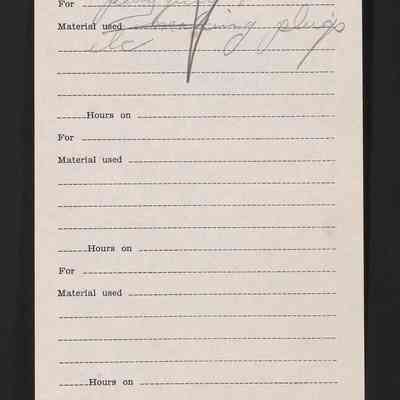 For
Material used making plugs
etc
Hours on
For
Material used
Hours on
For
Material used
Hours on